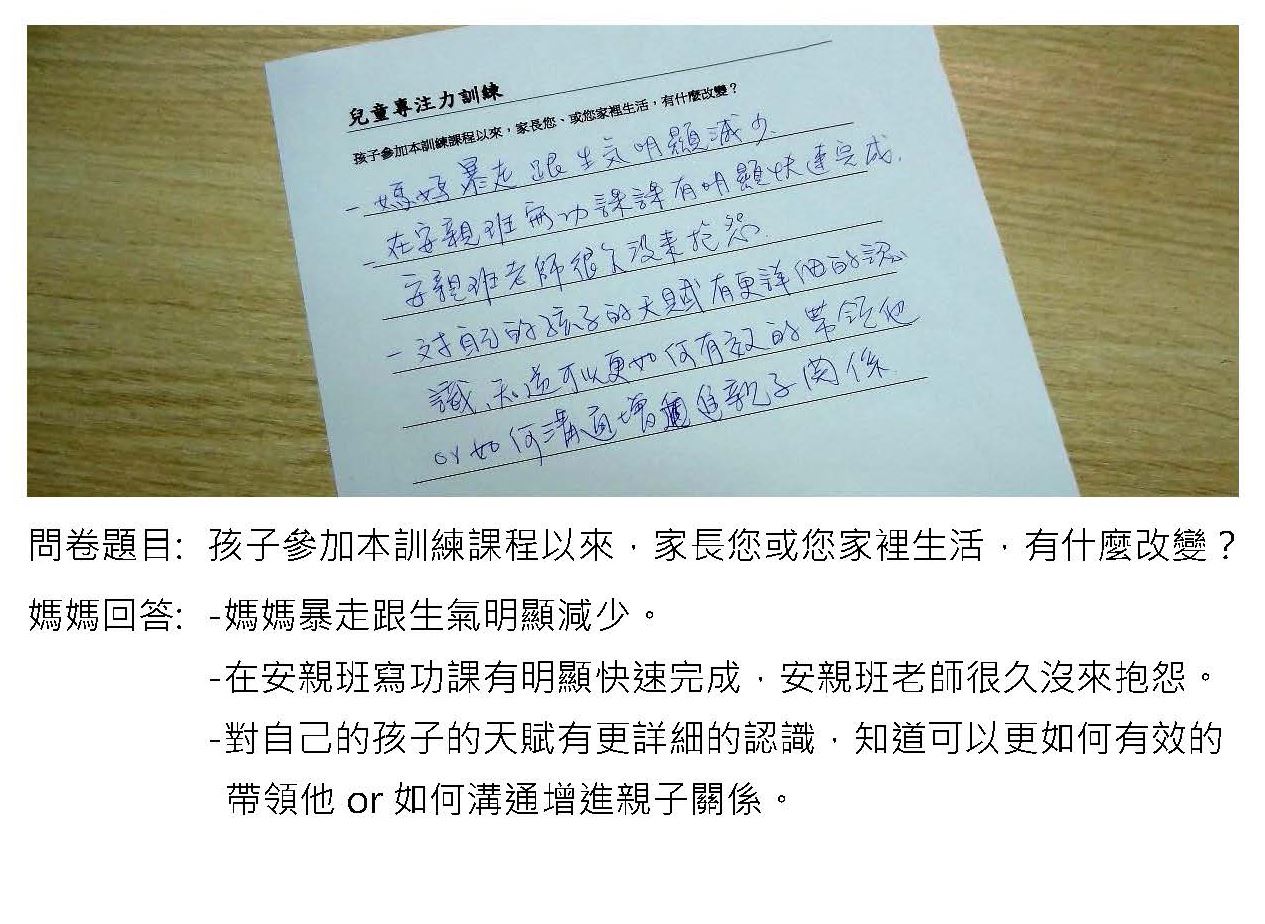 兒童專注力訓練
孩子參加本訓練課程以來，家長您、或您家裡生活，有什麼改變？
- 媽媽暴走跟生気明顯減少.
- 在安親班寫功課課有明顯快速完成.
安親班老師很久沒來抱怨.
- 对自己的孩子的天賦有更詳細的認
識、知道可以更如何有效的帶領他
or如何溝通增進親子関係
問卷題目: 孩子參加本訓練課程以來，家長您或您家裡生活，有什麼改變？
媽媽回答: -媽媽暴走跟生氣明顯減少。
-在安親班寫功課有明顯快速完成，安親班老師很久沒來抱怨。
-對自己的孩子的天賦有更詳細的認識，知道可以更如何有效的
帶領他 or 如何溝通增進親子關係。